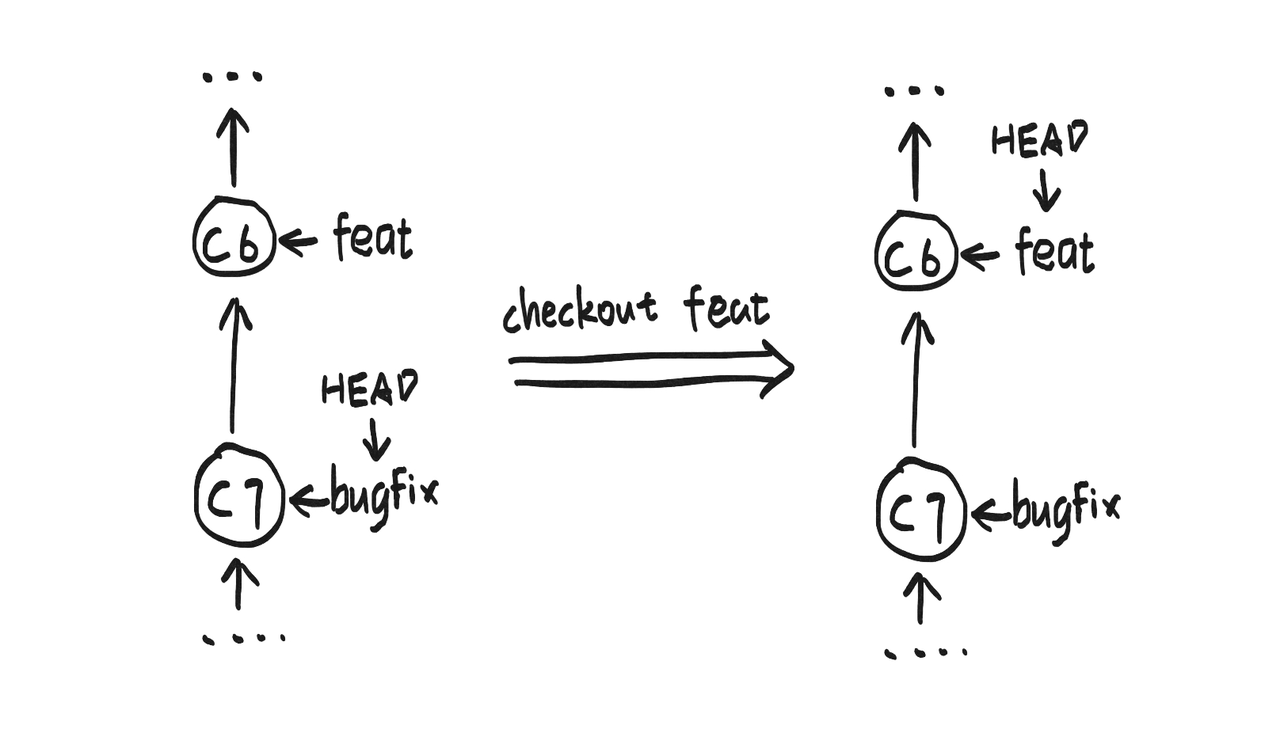 ...
C6
feat
HEAD
C7
bugfix
....
checkout feat
...
HEAD
C6
feat
C7
bugfix
....